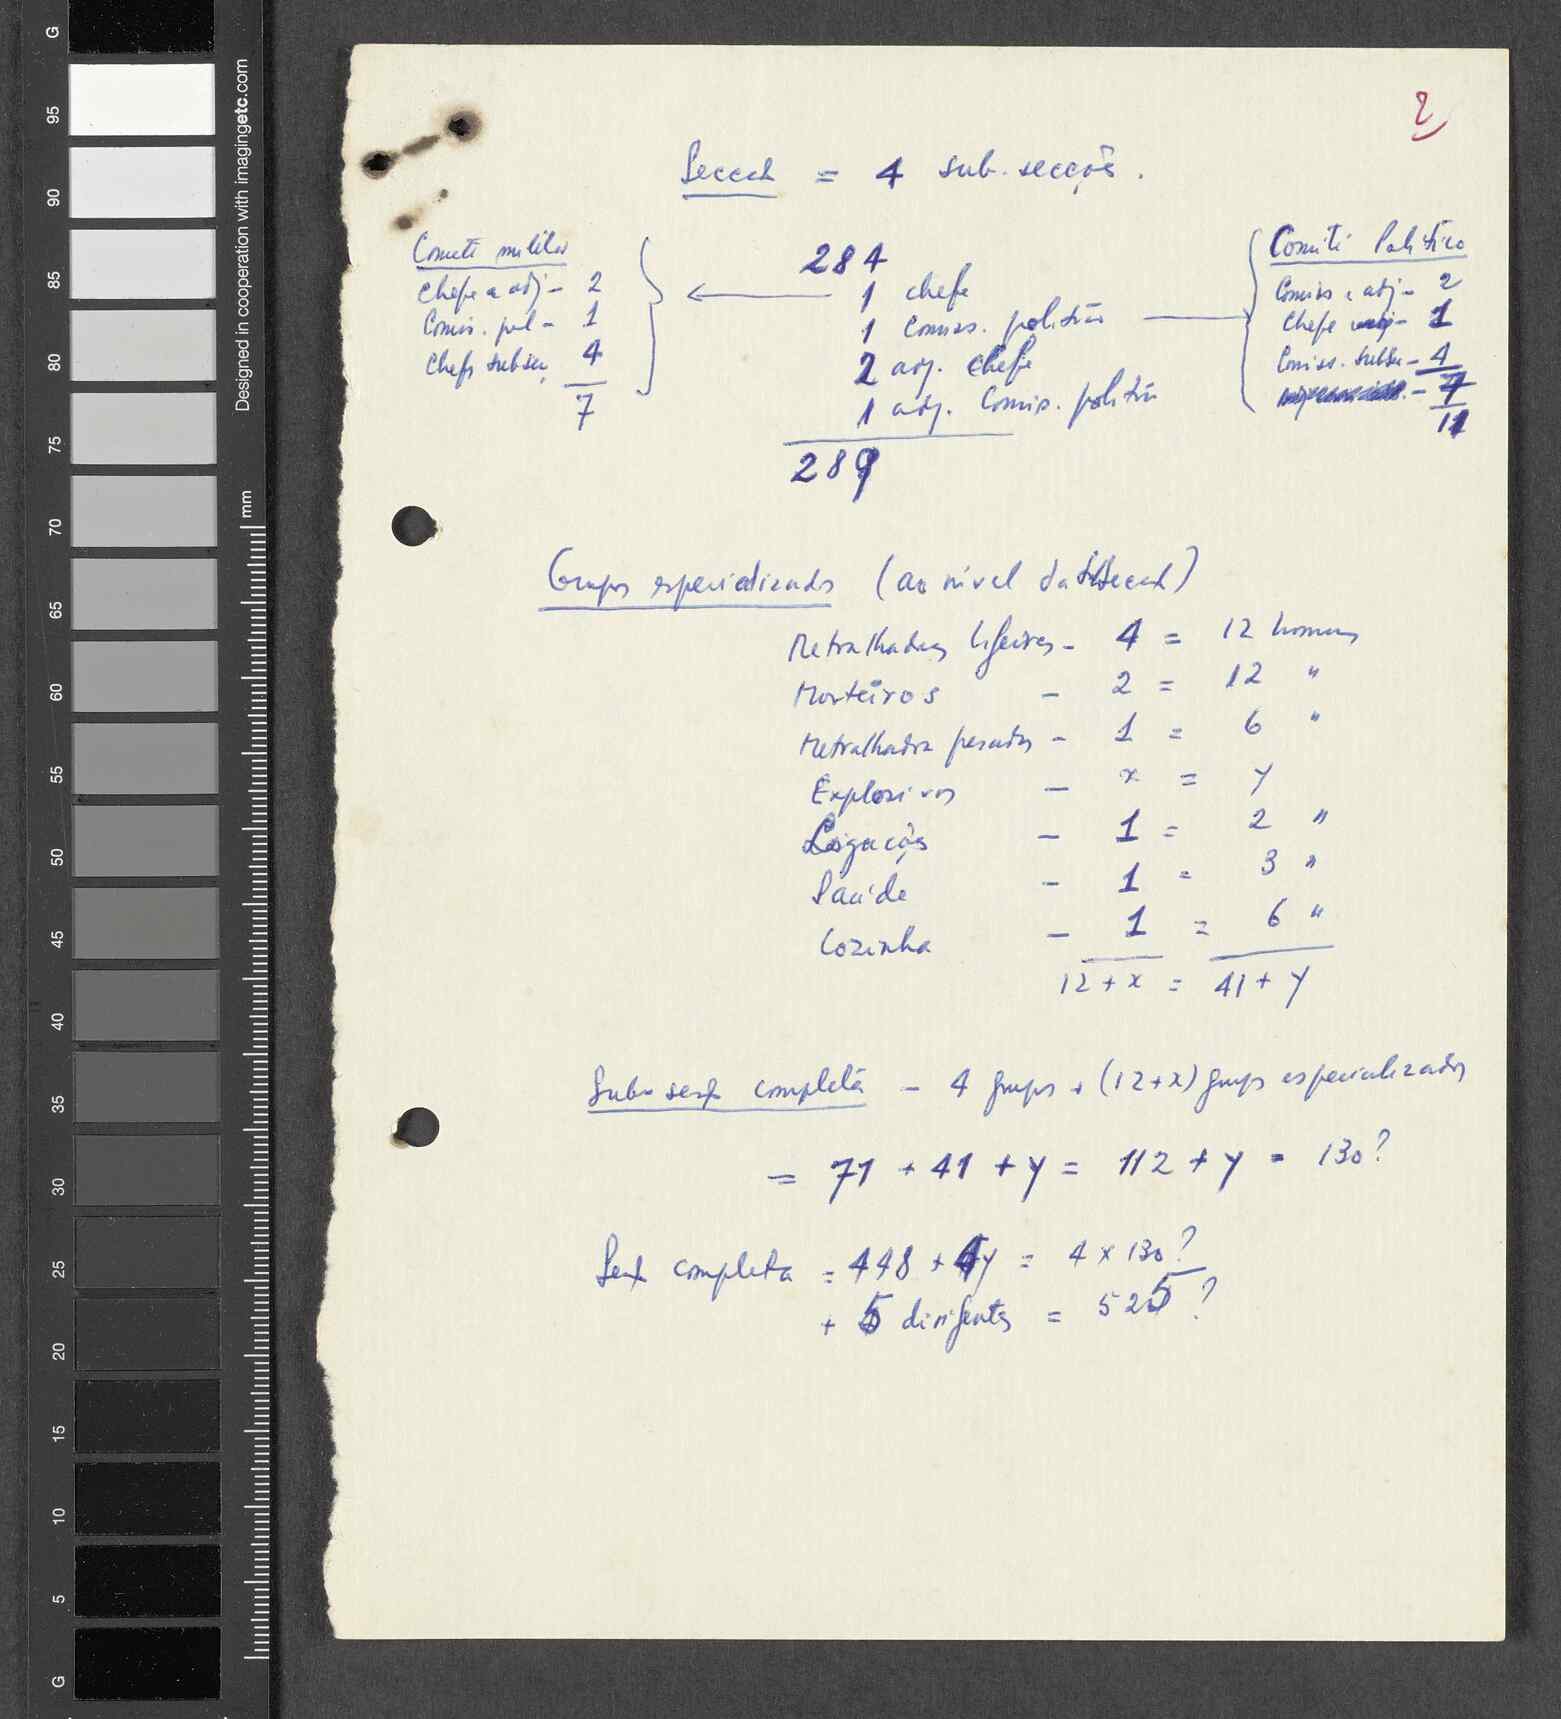 2
Secção = 4 sub-secções.
Comité militar
Chefe e adj – 2
Comis. pol – 1
Chefs subsec. 4
7
284
1 chefe
1 Comiss. político
2 adj. Chefe
1 adj. Comis. político
289
Comité Político
Comiss e adj – 2
Chefe – 1
Comiss. subsec – 4
7
11
Grupos especializados (ao nível da Secção)
Metralhadoras ligeiras – 4 = 12 homens
Morteiros – 2 = 12 "
Metralhadora pesada – 1 = 6 "
Explosivos – x = y
Ligações – 1 = 2 "
Saúde – 1 = 3 "
Cozinha – 1 = 6 "
12 + x = 41 + y
Sub-secção completa – 4 grupos + (12+x) grupos especializados
= 71 + 41 + y = 112 + y = 130?
Secção completa = 448 + 4y = 4 x 130?
+ 5 dirigentes = 525?
G
95
90
85
80
75
70
65
60
55
50
45
40
35
30
25
20
15
10
5
G
Designed in cooperation with imagingetc.com
mm